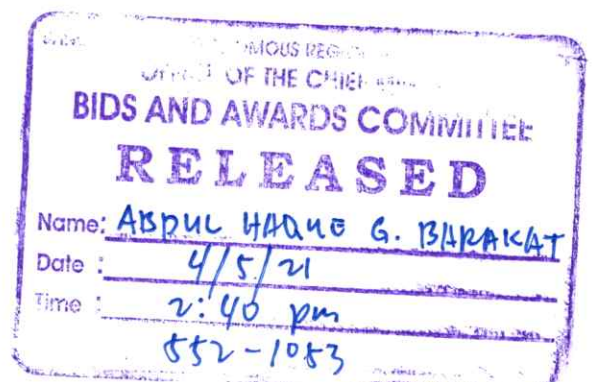 OFFICE OF THE CHIEF
BIDS AND AWARDS COMMITTEE
RELEASED
Name: ABDUL HAQUE G. BARAKAT
Date : 4/5/21
Time : 2:40 pm
552-1053